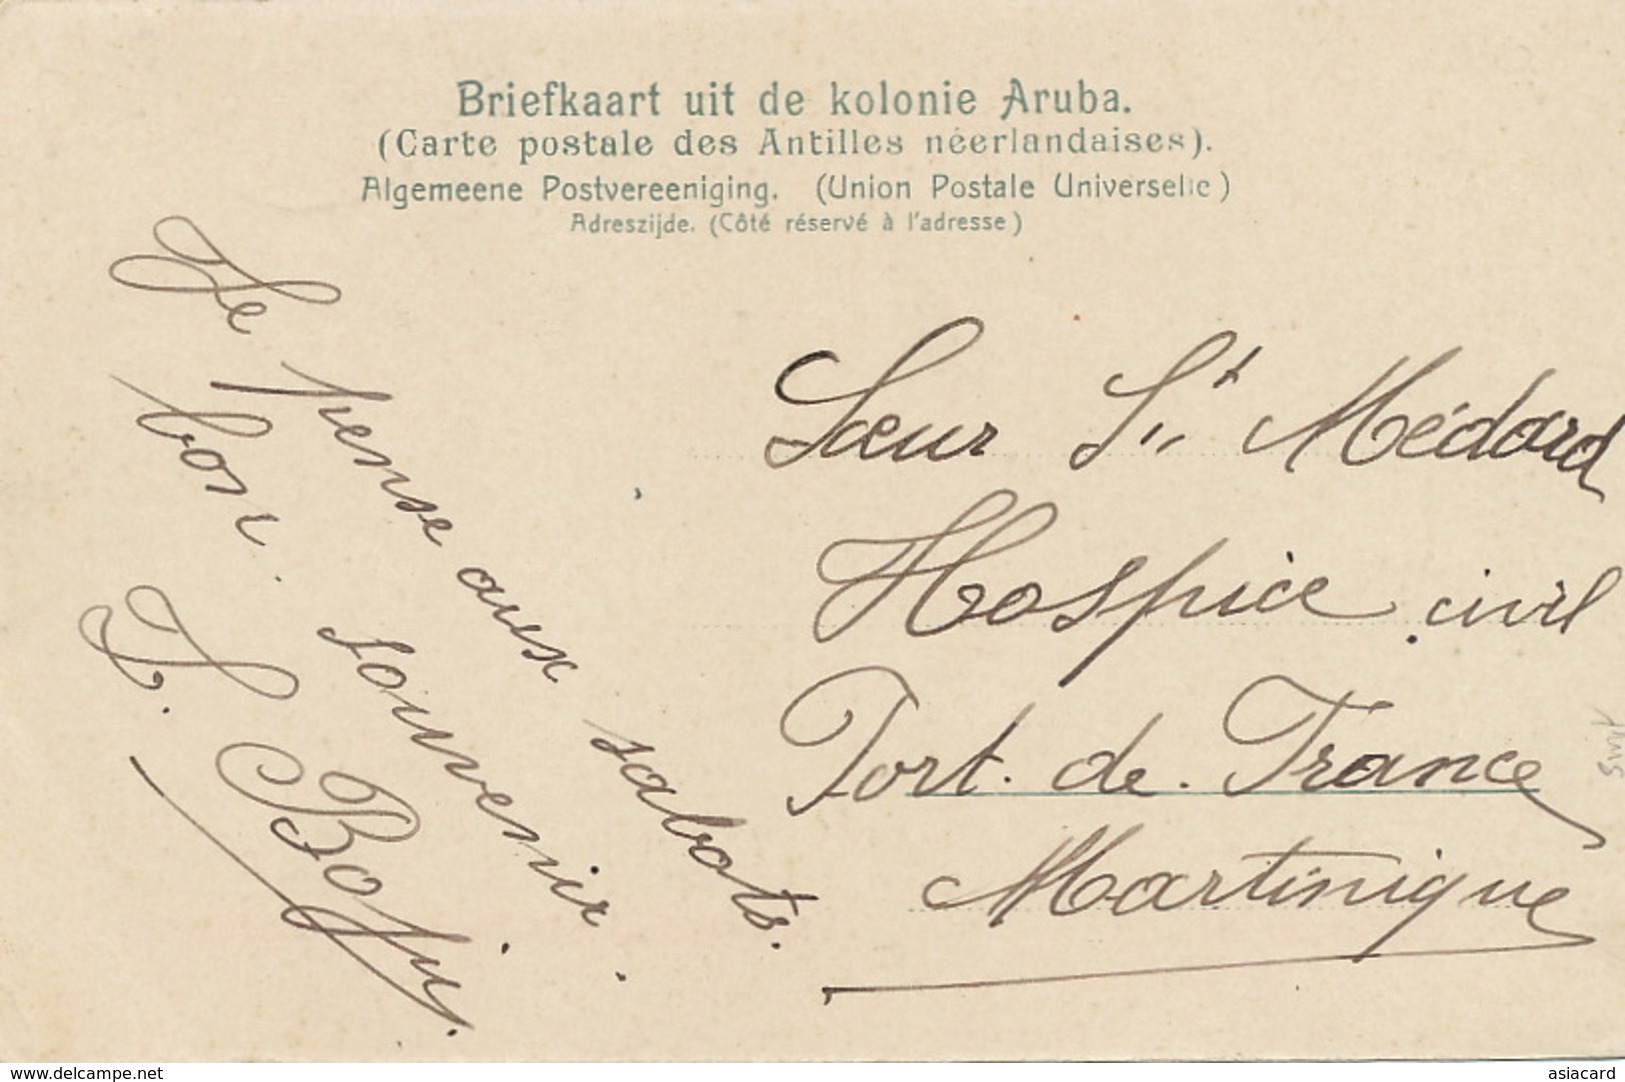 Briefkaart uit de kolonie Aruba.
(Carte postale des Antilles néerlandaises).
Algemeene Postvereeniging. (Union Postale Universelle)
Adreszijde. (Côté réservé à l'adresse)
Je pense aux sabots.
bon souvenir.
Sœur St Médard
Hospice civil
Fort. de. France
Martinique
www.delcampe.net
asiacard